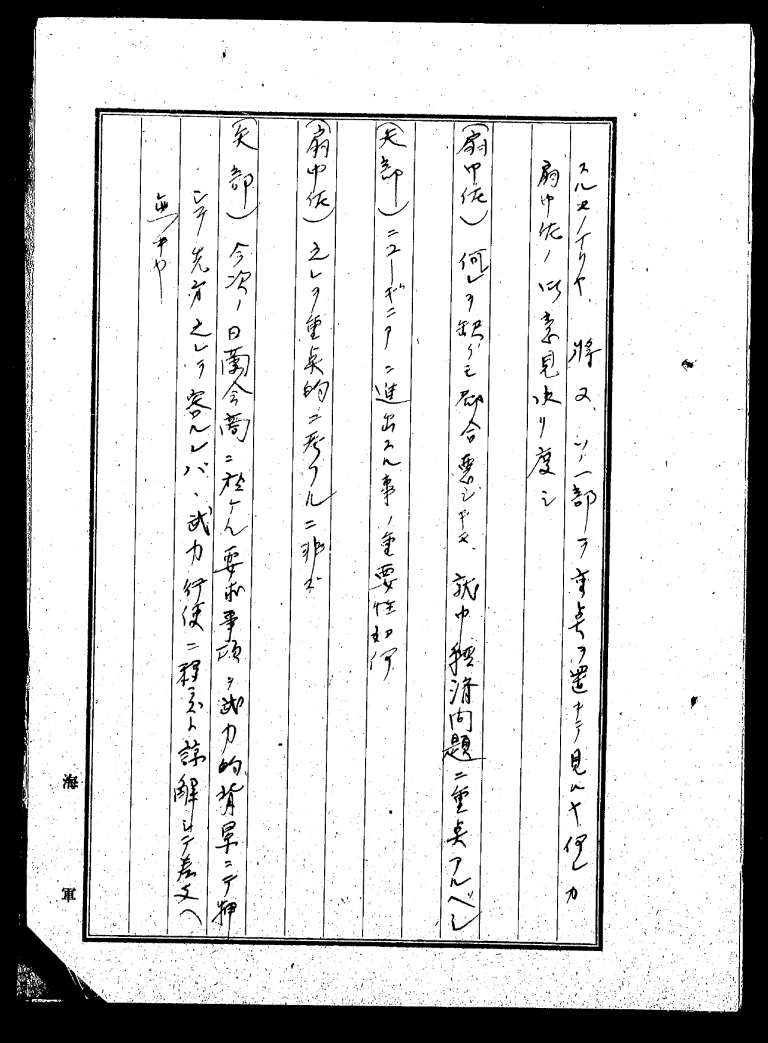 スルモノナリヤ、将又、ソノ一部ニ重点ヲ置キテ見ルヤ何レカ
扇中佐ノ御意見承リ度シ
(扇中佐) 何レヲ缺クモ都合悪シキモ、就中経済問題ニ重点アルベシ
(矢部) ニューギニアニ進出スル事ノ重要性如何
(扇中佐) 之レヲ重点的ニ考フルニ非ズ
(矢部) 今次ノ日蘭会商ニ於ケル要求事項ヲ武力的背景ニテ押
シテ先方之レヲ容ルレバ、武力行使ニ程度ト諒解シテ差支ヘ
無キヤ
海軍